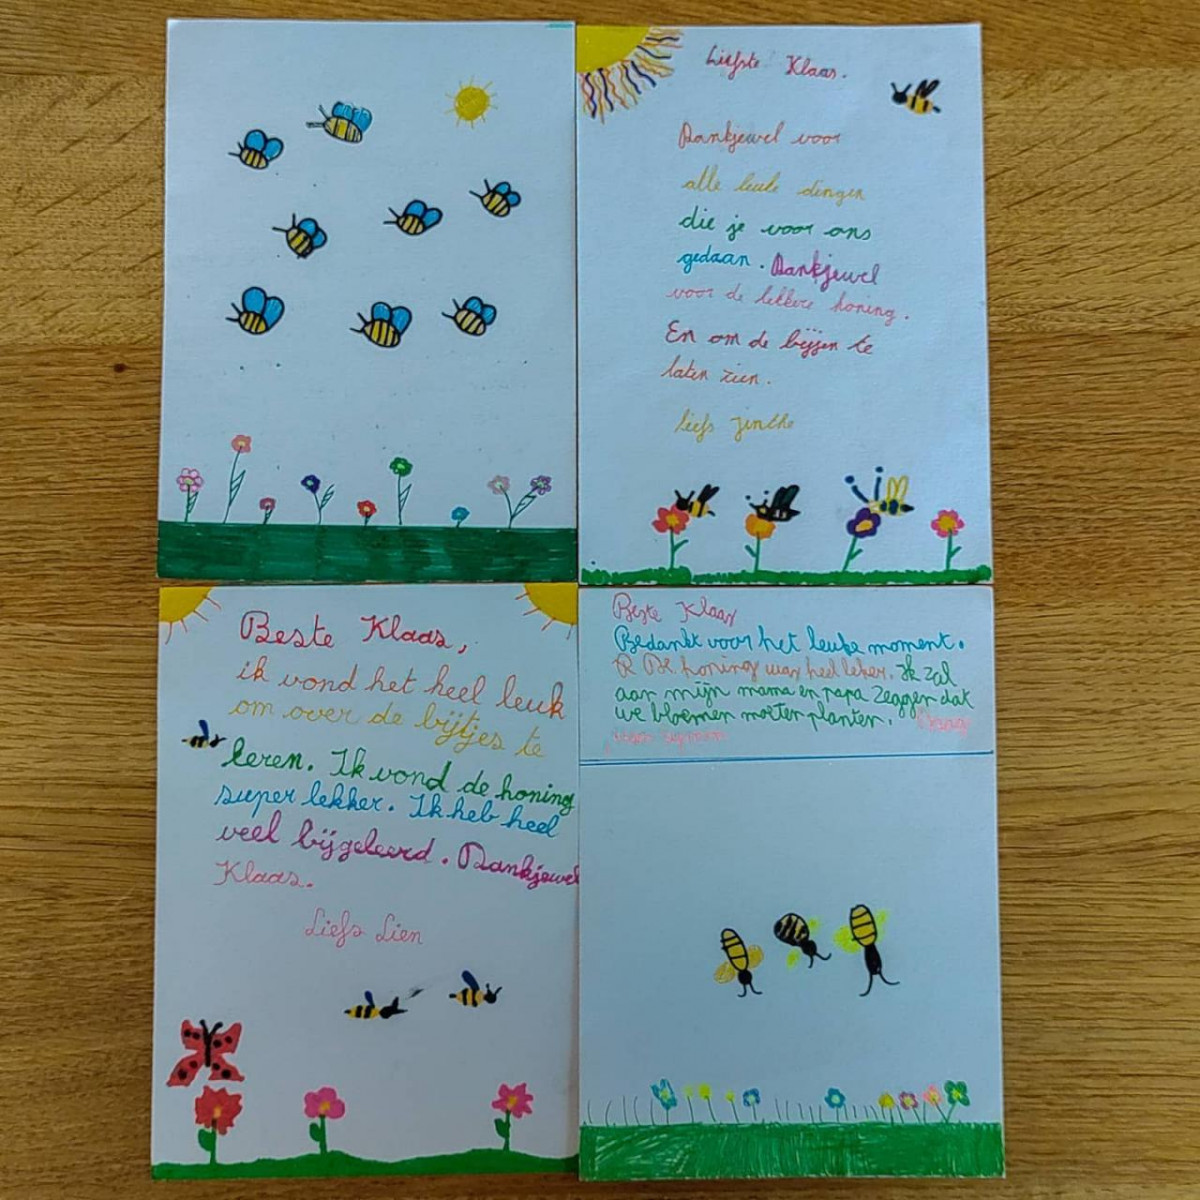 Liefste Klaas.
Dankjewel voor
alle leuke dingen
die je voor ons
gedaan. Dankjewel
voor de lekkere honing.
En om de bijjen te
laten zien.
liefs jinthe
Beste Klaas,
ik vond het heel leuk
om over de bijtjes te
leren. Ik vond de honing
super lekker. Ik heb heel
veel bijgeleerd. Dankjewel
Klaas.
Liefs Lien
Beste Klaas
Bedankt voor het leuke moment.
De honing was heel leker. Ik zal
aan mijn mama en papa zeggen dat
we bloemen moeten planten.